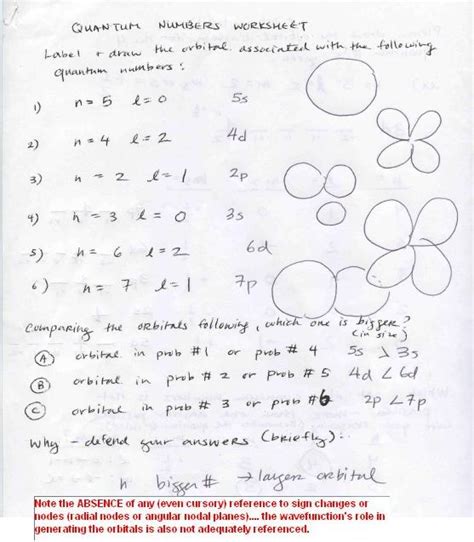 QUANTUM NUMBERS WORKSHEET
Label + draw the orbital associated with the following
quantum numbers:
1) n = 5 l = 0 5s
2) n = 4 l = 2 4d
3) n = 2 l = 1 2p
4) n = 3 l = 0 3s
5) n = 6 l = 2 6d
6) n = 7 l = 1 7p
Comparing the orbitals following, which one is bigger?
(in size)
A orbital in prob #1 or prob # 4 5s > 3s
B orbital in prob # 2 or prob # 5 4d < 6d
C orbital in prob # 3 or prob #6 2p < 7p
Why - defend your answers (briefly):
n bigger # → larger orbital
Note the ABSENCE of any (even cursory) reference to sign changes or
nodes (radial nodes or angular nodal planes).... the wavefunction's role in
generating the orbitals is also not adequately referenced.